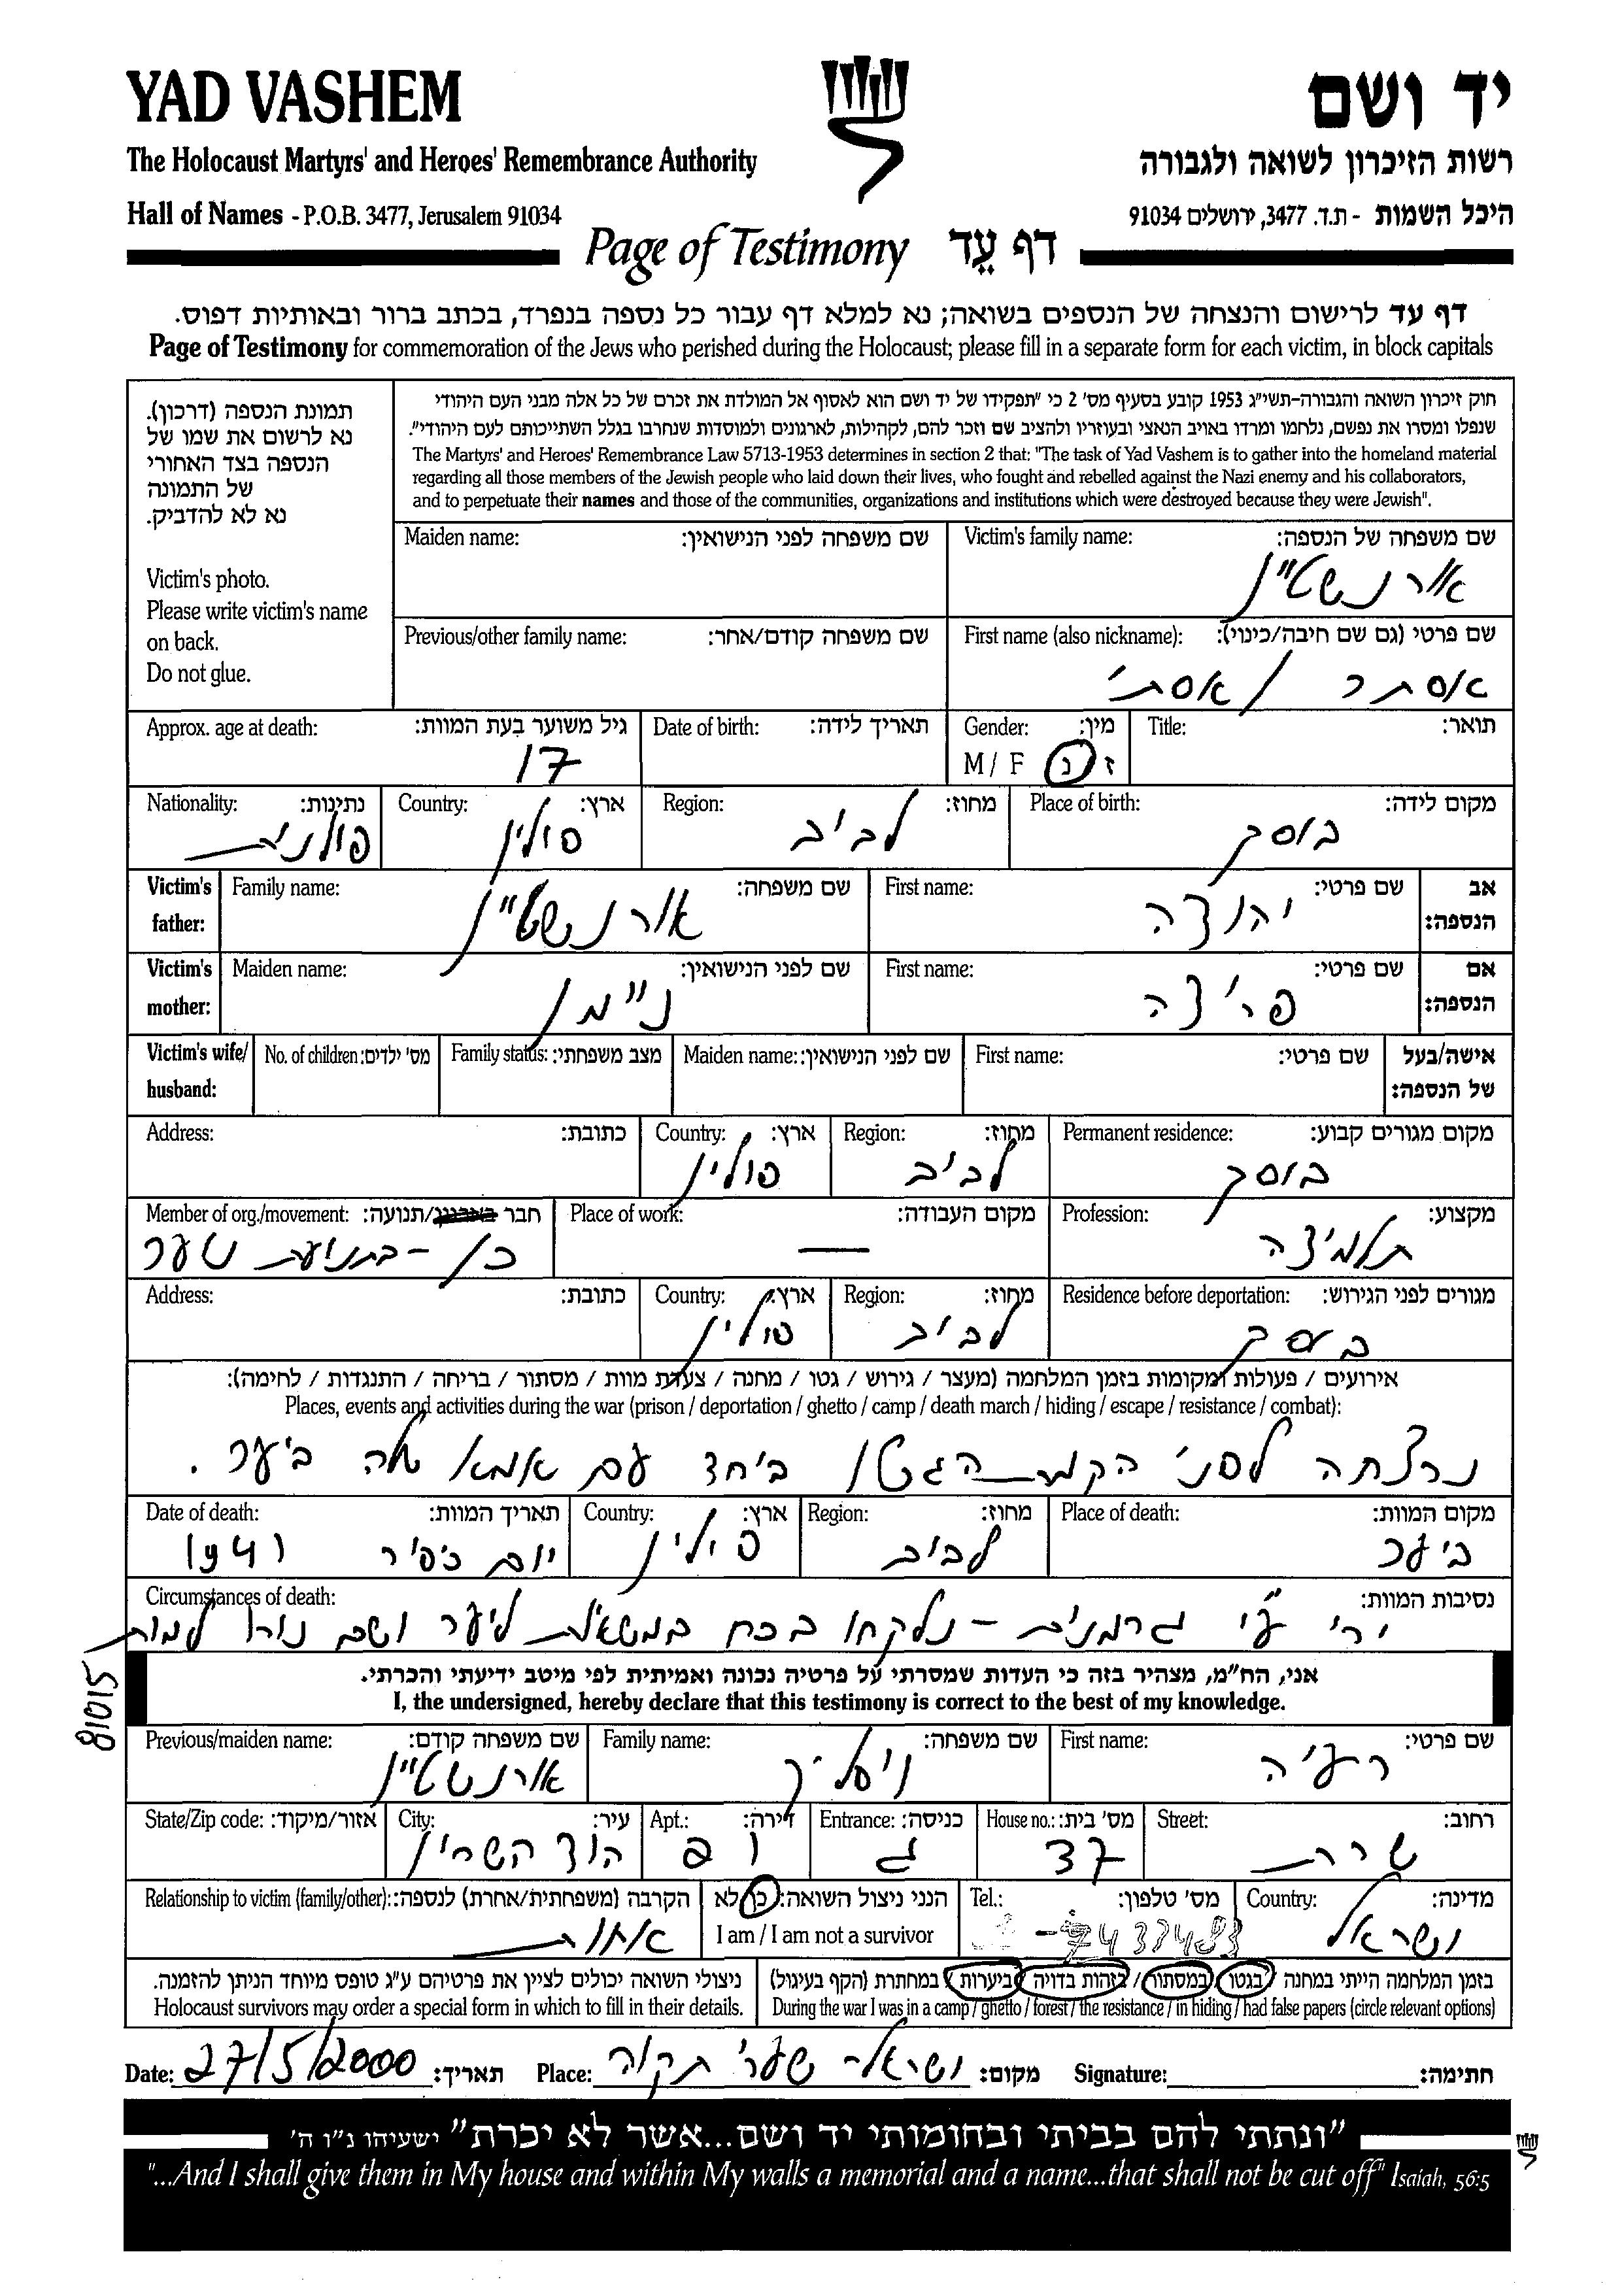 YAD VASHEM
יד ושם
The Holocaust Martyrs' and Heroes' Remembrance Authority
רשות הזיכרון לשואה ולגבורה
Hall of Names - P.O.B. 3477, Jerusalem 91034
היכל השמות - ת.ד. 3477, ירושלים 91034
Page of Testimony דף עֵד
דף עד לרישום והנצחה של הנספים בשואה; נא למלא דף עבור כל נספה בנפרד, בכתב ברור ובאותיות דפוס.
Page of Testimony for commemoration of the Jews who perished during the Holocaust; please fill in a separate form for each victim, in block capitals
תמונת הנספה (דרכון).
נא לרשום את שמו של
הנספה בצד האחורי
של התמונה
נא לא להדביק.
Victim's photo.
Please write victim's name
on back.
Do not glue.
חוק זיכרון השואה והגבורה-תשי"ג 1953 קובע בסעיף מס' 2 כי "תפקידו של יד ושם הוא לאסוף אל המולדת את זכרם של כל אלה מבני העם היהודי
שנפלו ומסרו את נפשם, נלחמו ומרדו באויב הנאצי ובעוזריו ולהציב שם וזכר להם, לקהילות, לארגונים ולמוסדות שנחרבו בגלל השתייכותם לעם היהודי".
The Martyrs' and Heroes' Remembrance Law 5713-1953 determines in section 2 that: "The task of Yad Vashem is to gather into the homeland material
regarding all those members of the Jewish people who laid down their lives, who fought and rebelled against the Nazi enemy and his collaborators,
and to perpetuate their names and those of the communities, organizations and institutions which were destroyed because they were Jewish".
Victim's family name: שם משפחה של הנספה:
אורנשטיין
Maiden name: שם משפחה לפני הנישואין:
First name (also nickname): שם פרטי (גם שם חיבה/כינוי):
אסתר / אסתי
Previous/other family name: שם משפחה קודם/אחר:
Title: תואר:
Gender: מין:
M / F ז / נ
Date of birth: תאריך לידה:
Approx. age at death: גיל משוער בעת המוות:
17
Place of birth: מקום לידה:
בוסק
Region: מחוז:
לביב
Country: ארץ:
פולין
Nationality: נתינות:
פולנית
Victim's father: אב הנספה:
First name: שם פרטי:
יהודה
Family name: שם משפחה:
אורנשטיין
Victim's mother: אם הנספה:
First name: שם פרטי:
פרידה
Maiden name: שם לפני הנישואין:
ניימן
Victim's wife/ husband: אישה/בעל של הנספה:
First name: שם פרטי:
Maiden name: שם לפני הנישואין:
Family status: מצב משפחתי:
No. of children: מס' ילדים:
Permanent residence: מקום מגורים קבוע:
בוסק
Region: מחוז:
לביב
Country: ארץ:
פולין
Address: כתובת:
Profession: מקצוע:
תלמידה
Place of work: מקום העבודה:
—
Member of org./movement: חבר /תנועה:
כן - בתנועת נוער
Residence before deportation: מגורים לפני הגירוש:
בוסק
Region: מחוז:
לביב
Country: ארץ:
פולין
Address: כתובת:
אירועים / פעולות ומקומות בזמן המלחמה (מעצר / גירוש / גטו / מחנה / צעדת מוות / מסתור / בריחה / התנגדות / לחימה):
Places, events and activities during the war (prison / deportation / ghetto / camp / death march / hiding / escape / resistance / combat):
נרצחה לפני הקמת הגטו ביחד עם אמא שלה ביער.
Place of death: מקום המוות:
ביער
Region: מחוז:
לביב
Country: ארץ:
פולין
Date of death: תאריך המוות:
יום כיפור 1941
Circumstances of death: נסיבות המוות:
ירי ע"י גרמנים - נלקחו בכח במשאית ליער ושם נורו למות
81015
אני, הח"מ, מצהיר בזה כי העדות שמסרתי על פרטיה נכונה ואמיתית לפי מיטב ידיעתי והכרתי.
I, the undersigned, hereby declare that this testimony is correct to the best of my knowledge.
First name: שם פרטי:
רעיה
Family name: שם משפחה:
Previous/maiden name: שם משפחה קודם:
אורנשטיין
Street: רחוב:
שרת
House no.: מס' בית:
37
Entrance: כניסה:
ג
Apt.: דירה:
City: עיר:
הוד השרון
State/Zip code: אזור/מיקוד:
Country: מדינה:
ישראל
Tel.: מס' טלפון:
-7437483
הנני ניצול השואה: כן / לא
I am / I am not a survivor
Relationship to victim (family/other): הקרבה (משפחתית/אחרת) לנספה:
אחות
בזמן המלחמה הייתי במחנה / בגטו / במסתור / בזהות בדויה / ביערות / במחתרת (הקף בעיגול)
During the war I was in a camp / ghetto / forest / the resistance / in hiding / had false papers (circle relevant options)
ניצולי השואה יכולים לציין את פרטיהם ע"ג טופס מיוחד הניתן להזמנה.
Holocaust survivors may order a special form in which to fill in their details.
Date: 27/5/2000 תאריך: Place: ישראל שערי תקוה מקום: Signature: חתימה:
"ונתתי להם בביתי ובחומותי יד ושם...אשר לא יכרת" ישעיהו נ"ו ה'
"...And I shall give them in My house and within My walls a memorial and a name...that shall not be cut off" Isaiah, 56:5